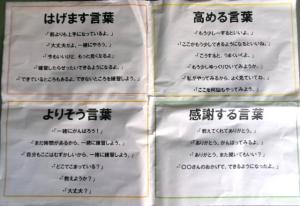 はげます言葉
「前よりも上手になっているよ。」
「大丈夫だよ、一緒にやろう。」
「今もいいけど、もっと良くなるよ。」
「練習したらぜったいできるようになるよ。」
「できているところもあるよ。できないところを練習しよう。」
高める言葉
「もう少し~するといいよ。」
「ここがもう少しできるようになるといいね。」
「こうすると、うまくいくよ。」
「もう少しゆっくりひいてみようか。」
「私がやってみるから、よく見ていてね。」
「ここを何回もやってみよう。」
よりそう言葉
「一緒にがんばろう！」
「まだ時間があるから、一緒に練習しよう。」
「自分もここはむずかしいから、一緒に練習しよう。」
「どこでこまっている？」
「教えようか？」
「大丈夫？」
感謝する言葉
「教えてくれてありがとう。」
「ありがとう。がんばってみるよ。」
「ありがとう。また聞いてもいい？」
「〇〇さんのおかげで、できるようになったよ。」